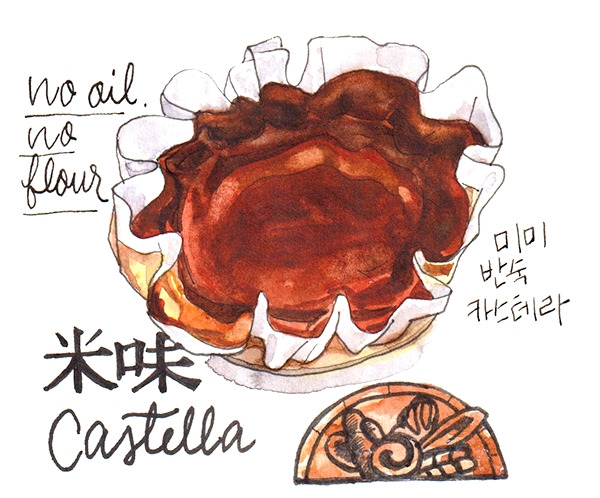 no oil.
no
flour
미미
반숙
카스테라
米味
Castella